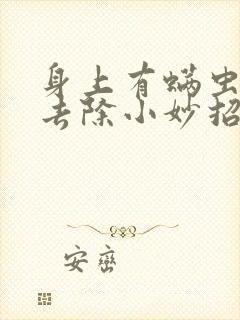 身上有螨虫
去除小妙招
安峦